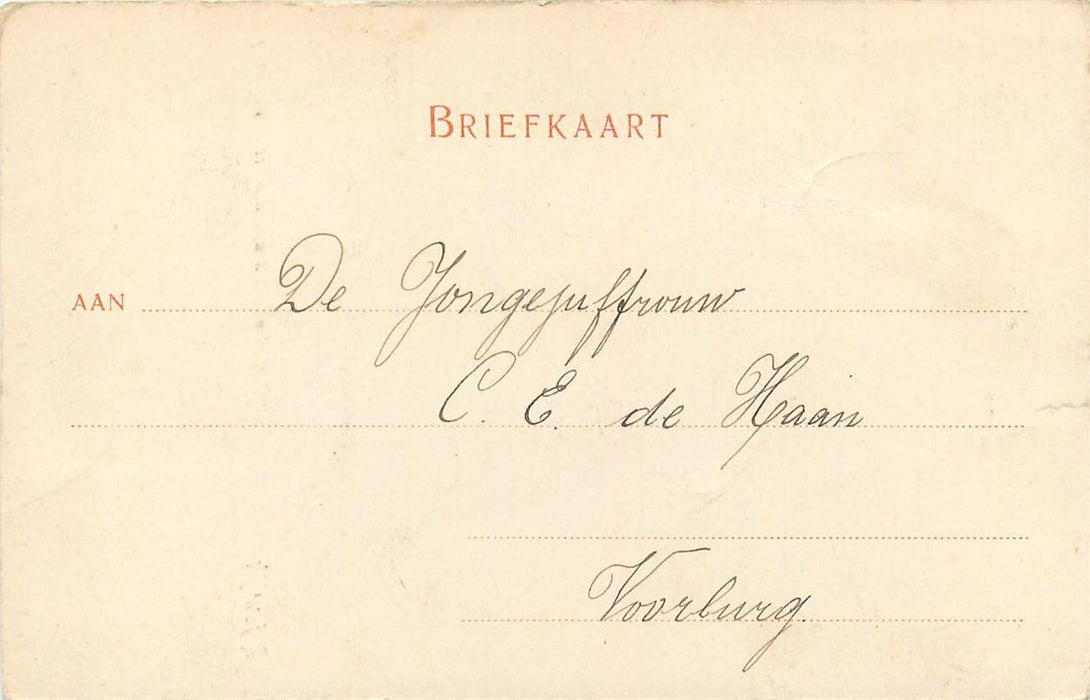 BRIEFKAART
AAN De Jongejuffrouw
C. E. de Haan
Voorburg.